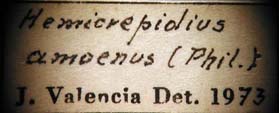 Hemicrepidius
amoenus (Phil.)
J. Valencia Det. 1973